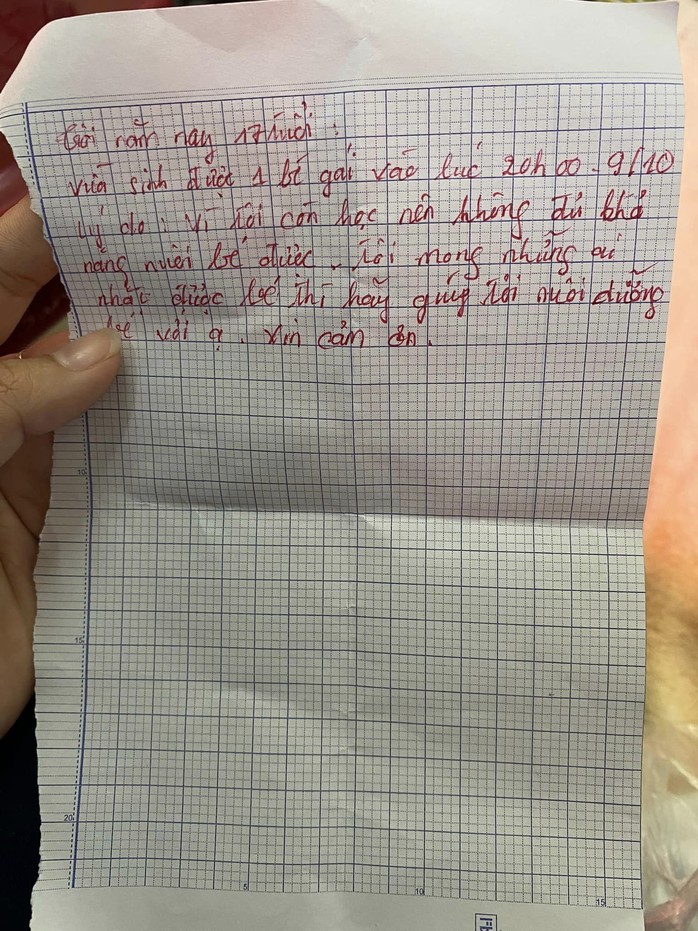 Tôi năm nay 17 tuổi.
vừa sinh được 1 bé gái vào lúc 20h00. 9/10
Lý do: vì tôi còn học nên không đủ khả
năng nuôi bé được. Tôi mong những ai
nhặt được bé thì hãy giúp tôi nuôi dưỡng
bé với ạ. Xin cảm ơn.
10
15
20
5
10
15